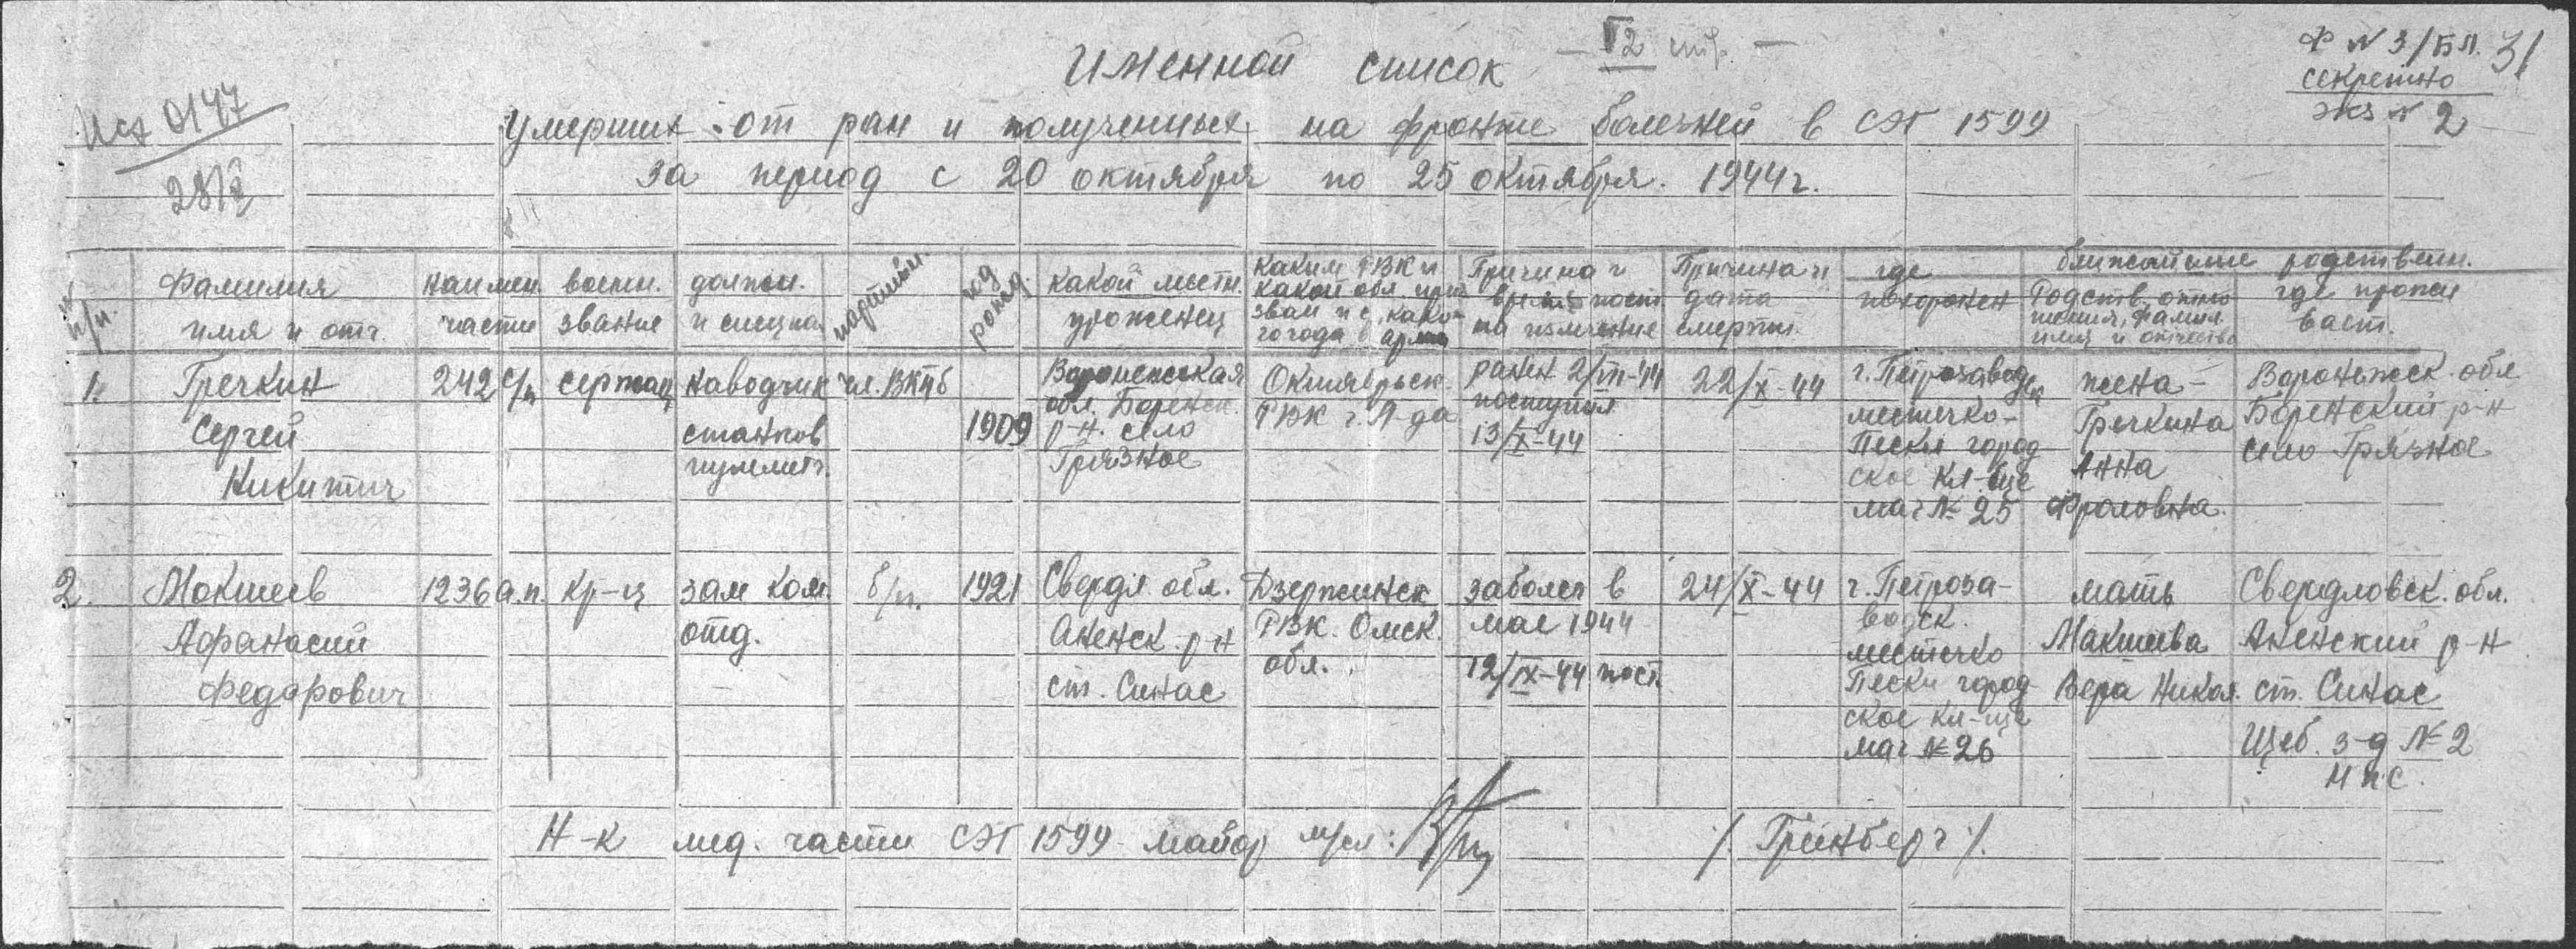 Ф № 3/БП. 31
Именной список
секретно
Исх 0147
экз № 2
умерших от ран и полученных на фронте болезней в СЭГ 1599
за период с 20 октября по 25 октября. 1944г.
№ п/п.
Фамилия имя и отч.
наимен. части
воен. звание
должн. и специал
партийн.
год рожд.
какой местн. уроженец
Каким РВК и какой обл. призван и с какого года в армии
Причина и время пост. на излечение
Причина и дата смерти.
где похоронен
ближайшие родствен.
Родств. отношения, фамил. имя и отчество
где прожи вает.
1.
Гречкин
Сергей
Никитич
242 с/п
сержан
наводчик
станков
пулемет.
чл. ВКПб
1909
Воронежская
обл. Боренск.
р-н. село
Грязное
Октябрьск.
РВК г. Л-да
ранен 2/VII-44
поступил
13/X-44
22/X-44
г. Петрозаводск
местечко-
Пески город
ское кл-ще
мог № 25
жена -
Гречкина
Анна
Фроловна.
Воронежск. обл
Боренский р-н
село Грязное
2.
Мокшеев
Афанасий
Федорович
1236 а.п.
кр-ц
зам ком.
отд.
б/п.
1921
Свердл. обл.
Аненск. р-н
ст. Синас
Дзержинск
РВК. Омск.
обл.
заболел в
мае 1944
12/IX-44 пост.
24/X-44
г. Петроза-
водск.
местечко
Пески город
ское кл-ще
мог № 26
мать
Мокшеева
Вера Никол.
Свердловск. обл.
Аненский р-н
ст. Синас
Щеб. з-д № 2
НПС.
Н-к мед. части СЭГ 1599 майор м/сл: /Гринберг/.